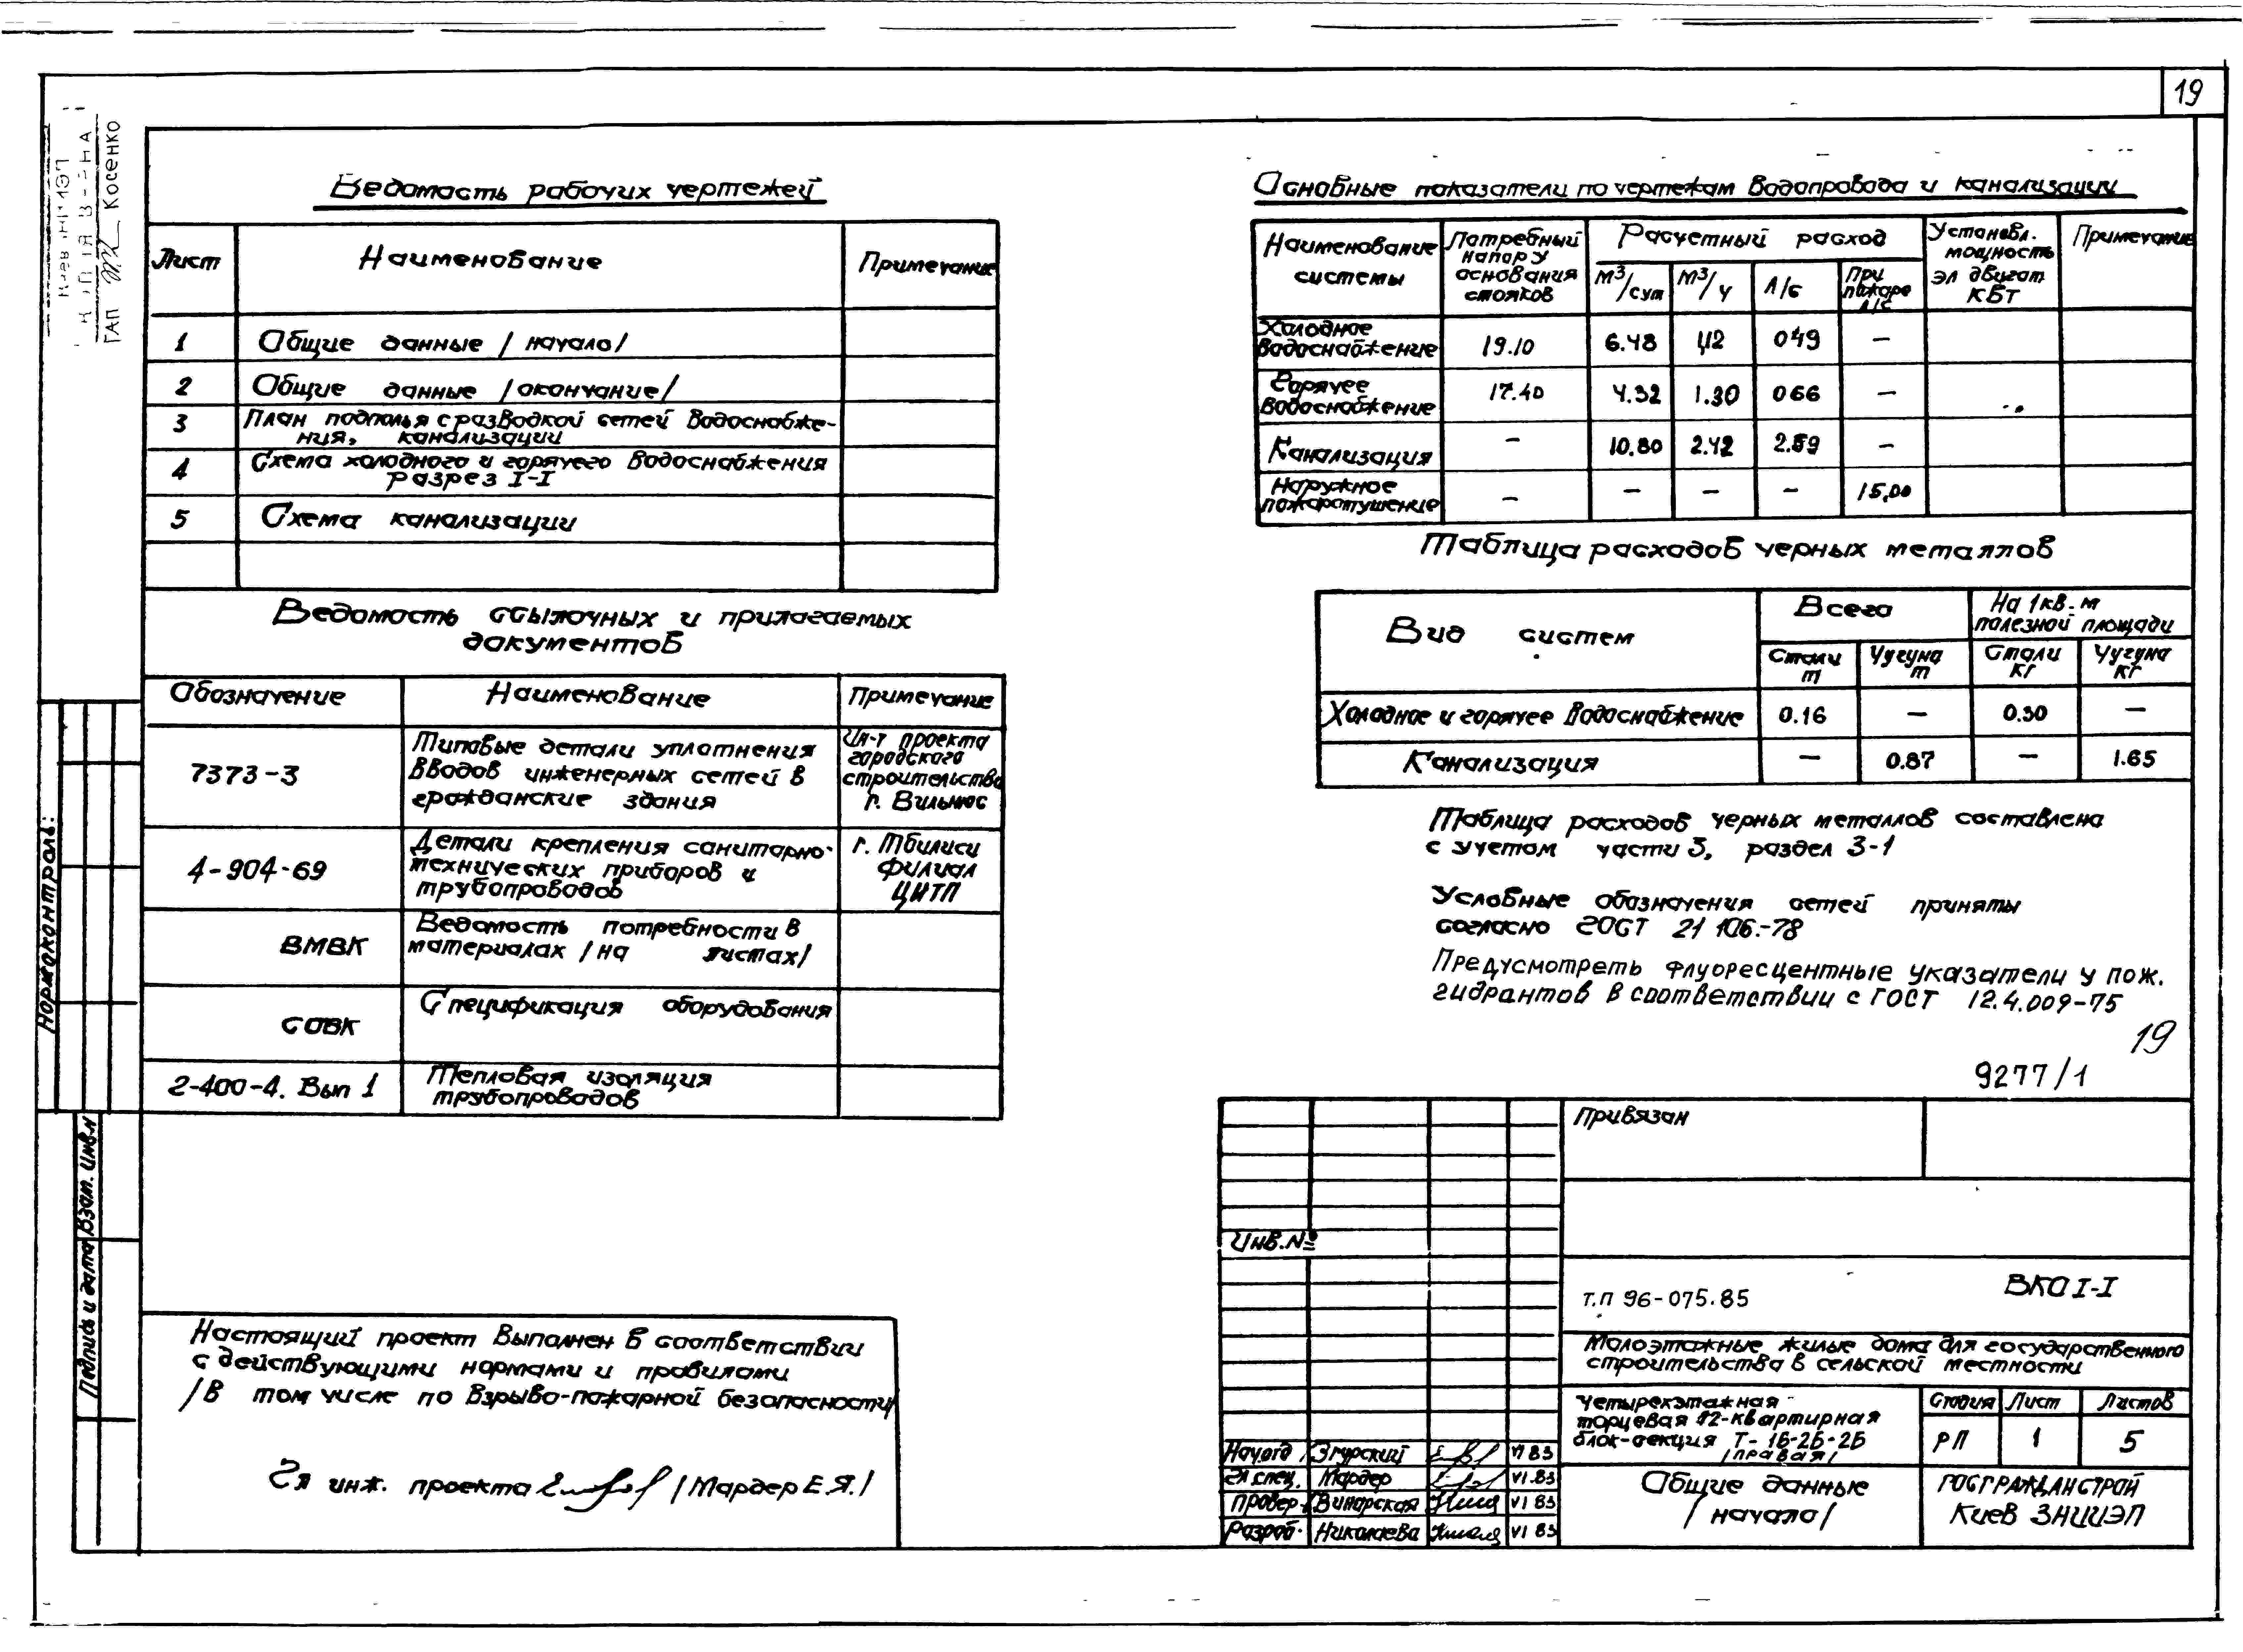 19
КОПІЯ ВІРНА
ГАП Косенко
Ведомость рабочих чертежей
Лист Наименование Примечание
1 Общие данные /начало/
2 Общие данные /окончание/
3 План подполья с разводкой сетей водоснабже-
ния, канализации
4 Схема холодного и горячего водоснабжения
Разрез I-I
5 Схема канализации
Ведомость ссылочных и прилагаемых
документов
Обозначение Наименование Примечание
7373-3 Типовые детали уплотнения
вводов инженерных сетей в
гражданские здания
Ин-т проекта
городского
строительства
г. Вильнюс
4-904-69 Детали крепления санитарно-
технических приборов и
трубопроводов
г. Тбилиси
филиал
ЦИТП
ВМВК Ведомость потребности в
материалах /на листах/
СОВК Спецификация оборудования
2-400-4. Вып 1 Тепловая изоляция
трубопроводов
Настоящий проект выполнен в соответствии
с действующими нормами и правилами
/в том числе по взрыво-пожарной безопасности/
Гл инж. проекта /Мардер Е.Я./
Основные показатели по чертежам водопровода и канализации
Наименование
системы
Потребный
напор у
основания
стояков
Расчетный расход
м³/сут м³/ч л/с При
пожаре
л/с
Установл.
мощность
эл двигат
кВт
Примечание
Холодное
водоснабжение 19.10 6.48 1,12 0.49 —
Горячее
водоснабжение 17.40 4.32 1.30 0.66 —
Канализация — 10.80 2.42 2.59 —
Наружное
пожаротушение — — — — 15,00
Таблица расходов черных металлов
Вид систем Всего На 1 кв. м
полезной площади
Стали
т
Чугуна
т
Стали
кг
Чугуна
кг
Холодное и горячее водоснабжение 0.16 — 0.30 —
Канализация — 0.87 — 1.65
Таблица расходов черных металлов составлена
с учетом части 3, раздел 3-1
Условные обозначения сетей приняты
согласно ГОСТ 21 106.-78
Предусмотреть флуоресцентные указатели у пож.
гидрантов в соответствии с ГОСТ 12.4.009-75
19
9277/1
Привязан
Инв.№
т.п 96-075.85 ВКО I-I
Малоэтажные жилые дома для государственного
строительства в сельской местности
Четырехэтажная
торцевая 12-квартирная
блок-секция Т-1Б-2Б-2Б
/правая/
Стадия Лист Листов
РП 1 5
Общие данные
/начало/
ГОСГРАЖДАНСТРОЙ
Киев ЗНИИЭП
Нач.отд Згурский VI 83
Гл спец. Мардер VI.83
Провер. Винарская VI 83
Разраб. Николаева VI 83
Нормоконтроль:
Взам. инв.N
Подпись и дата